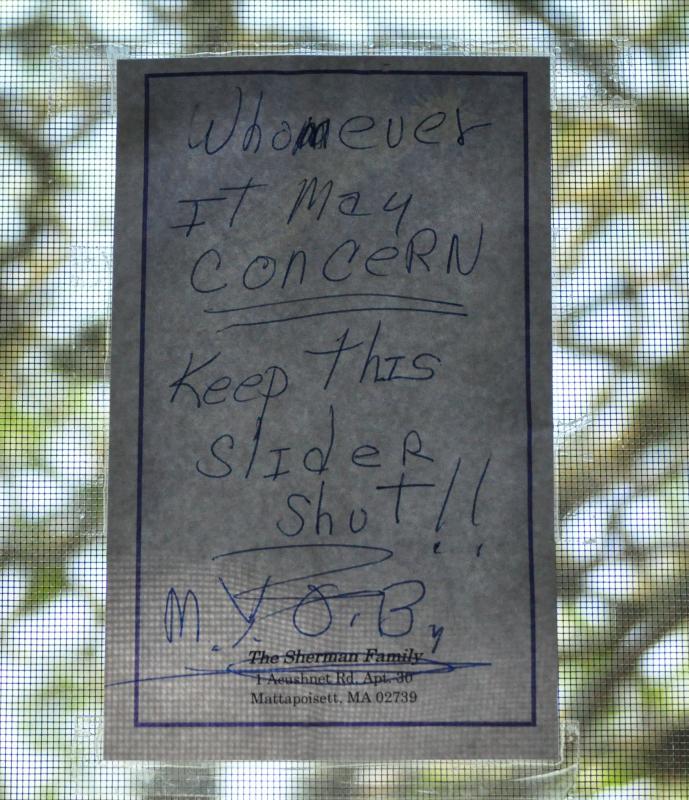 Whomever
It May
Concern
Keep this
slider
shut!!
M.Y.O.B,
The Sherman Family
1 Acushnet Rd. Apt. 30
Mattapoisett, MA 02739